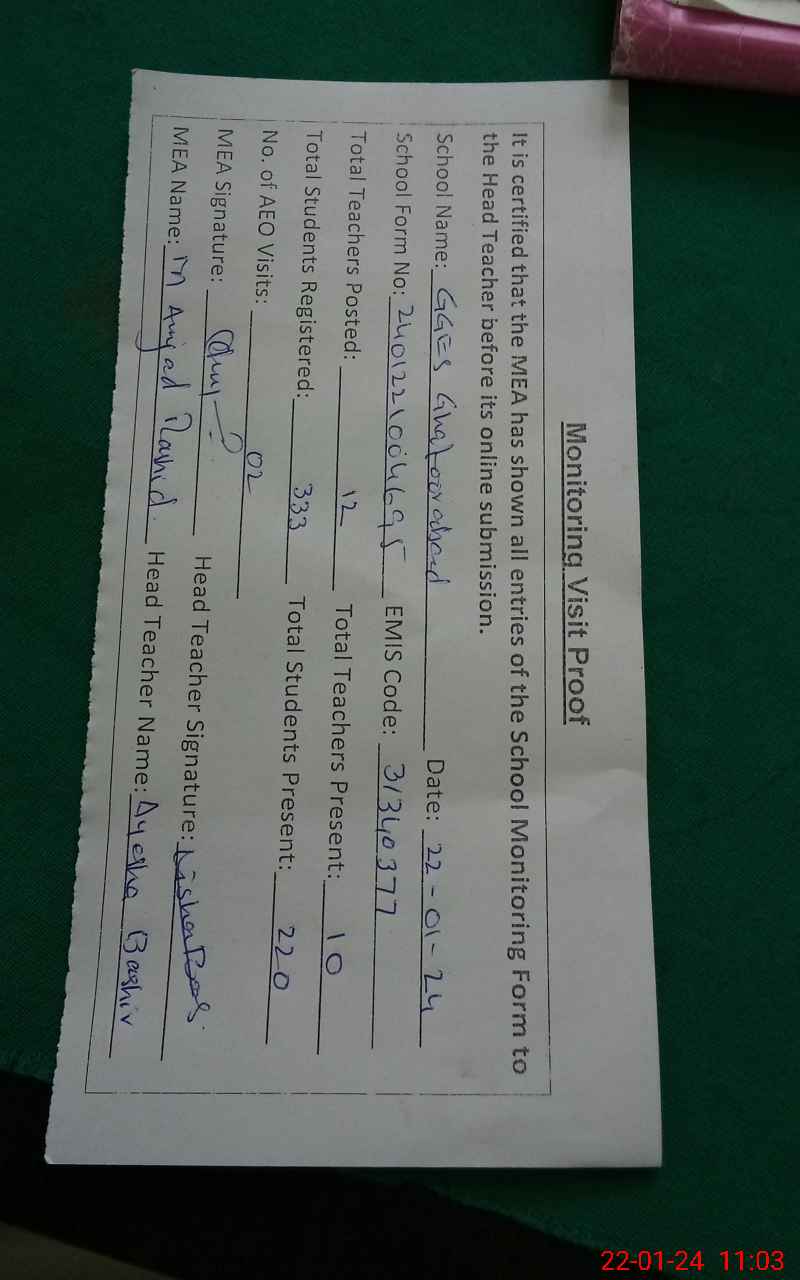 Monitoring Visit Proof
It is certified that the MEA has shown all entries of the School Monitoring Form to
the Head Teacher before its online submission.
School Name: GGES Date: 22-01-24
School Form No: 2401221004695 EMIS Code: 31340377
Total Teachers Posted: 12 Total Teachers Present: 10
Total Students Registered: 333 Total Students Present: 220
No. of AEO Visits: 02
MEA Signature: Head Teacher Signature:
MEA Name: M Amjad Rashid. Head Teacher Name: Ayesha Bashir
22-01-24 11:03